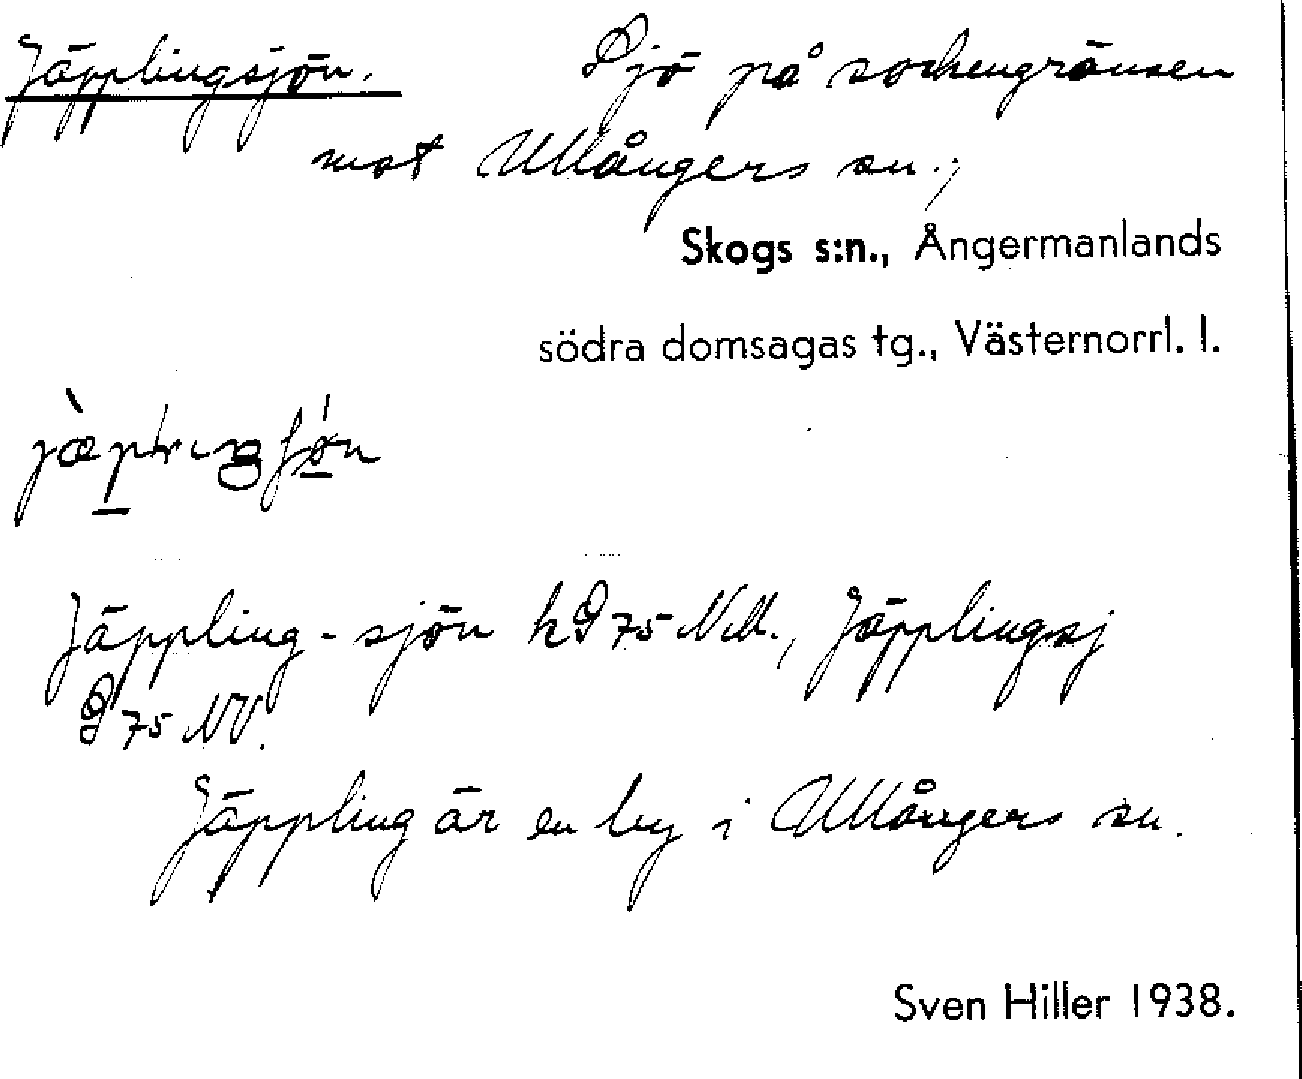 Jäpplingsjön. Sjö på sockengränsen
mot Ullångers sn.;
Skogs s:n., Ångermanlands
södra domsagas tg., Västernorrl. l.
Jäppling-sjön k G 75 NM., Jäpplingsj
G 75 NV.
Jäppling är en by i Ullångers sn.
Sven Hiller 1938.